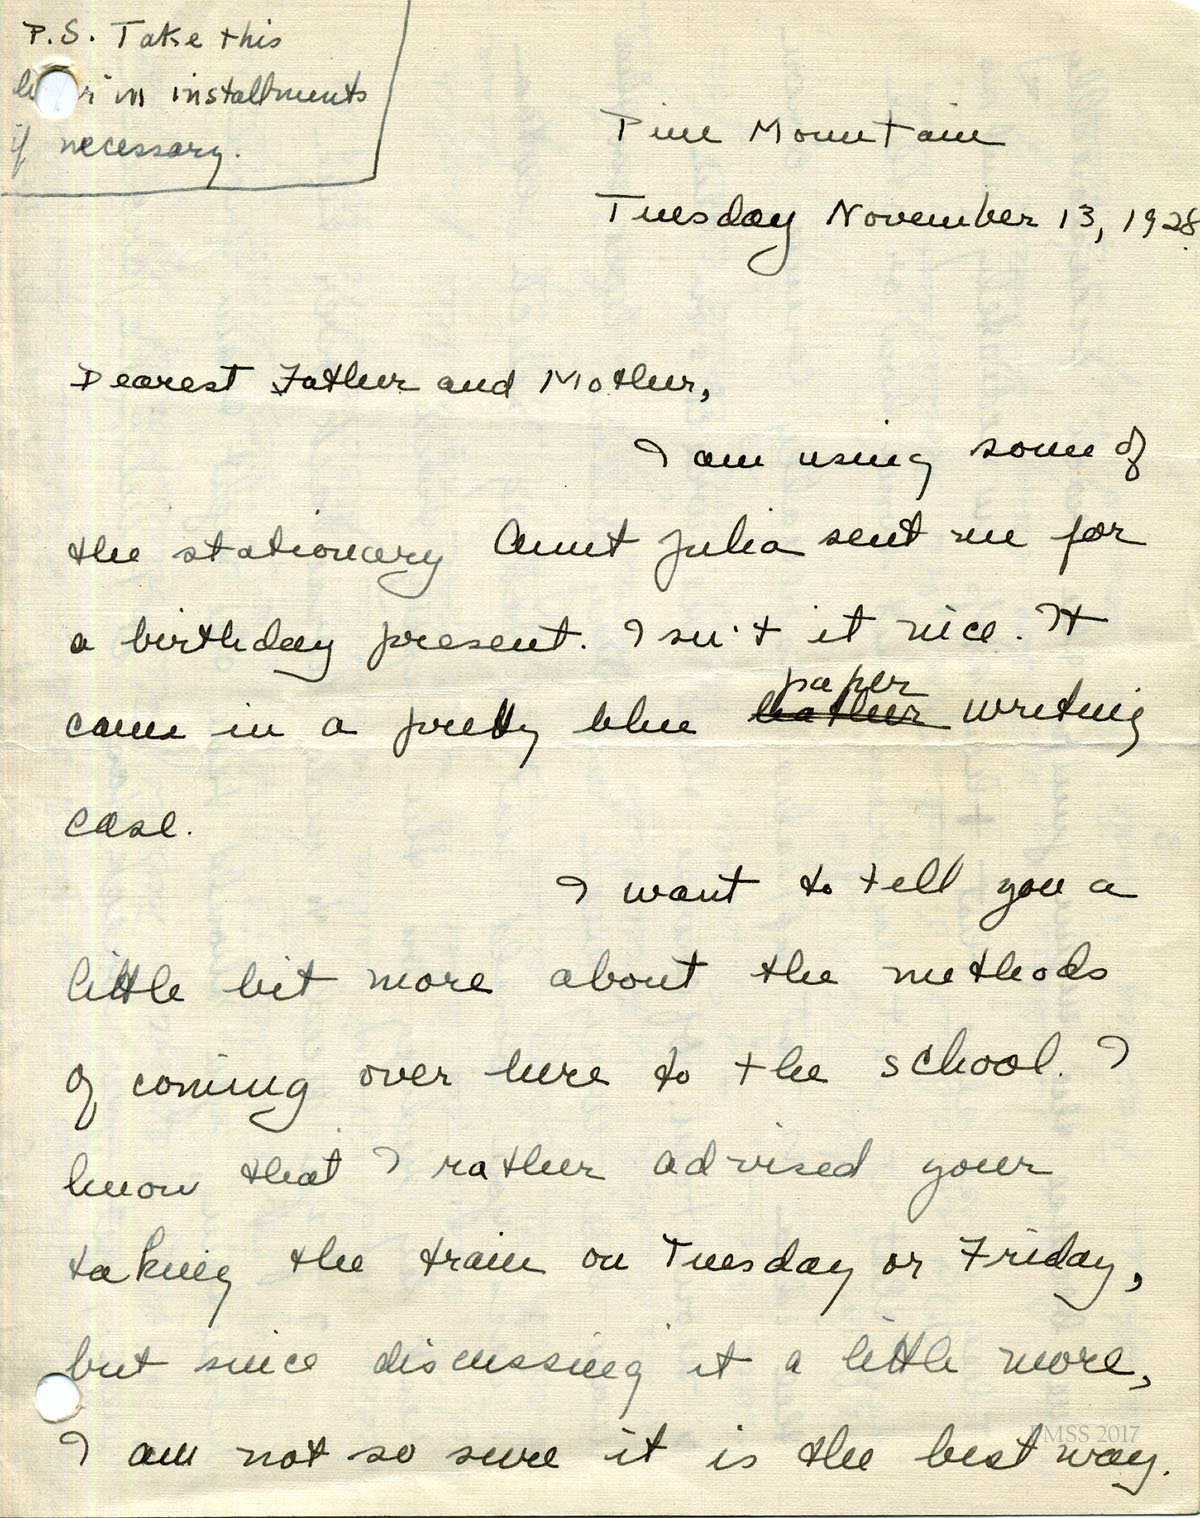 P.S. Take this
in installments
if necessary.
Pine Mountain
Tuesday November 13, 1928
Dearest Father and Mother,
I am using some of
the stationery Aunt Julia sent me for
a birthday present. Isn't it nice. It
paper
came in a pretty blue leather writing
case.
I want to tell you a
little bit more about the methods
of coming over here to the school. I
know that I rather advised your
taking the train on Tuesday or Friday,
but since discussing it a little more,
I am not so sure it is the best way.
MSS 2017